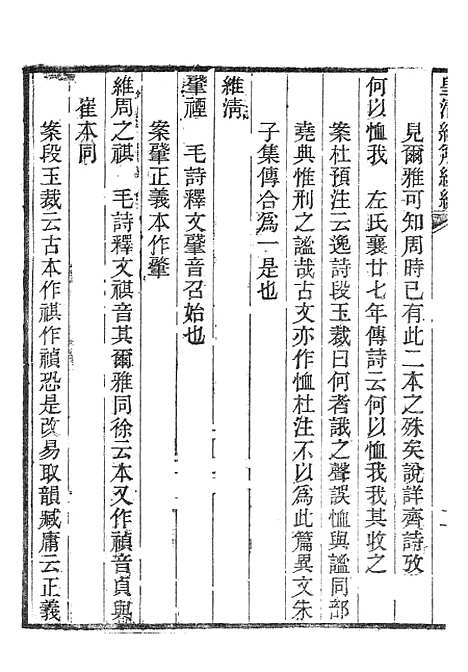 皇清經解續編
見爾雅可知周時已有此二本之殊矣說詳齊詩攷
何以恤我　左氏襄廿七年傳詩云何以恤我我其收之
案杜預注云逸詩段玉裁曰何者誐之聲誤恤與謐同部
堯典惟刑之謐哉古文亦作恤杜注不以爲此篇異文朱
子集傳合爲一是也
維淸
肈禋　毛詩釋文肈音召始也
案肈正義本作肇
維周之祺　毛詩釋文祺音其爾雅同徐云本又作禎音貞與
崔本同
案段玉裁云古本作祺作禎恐是改易取韻臧庸云正義